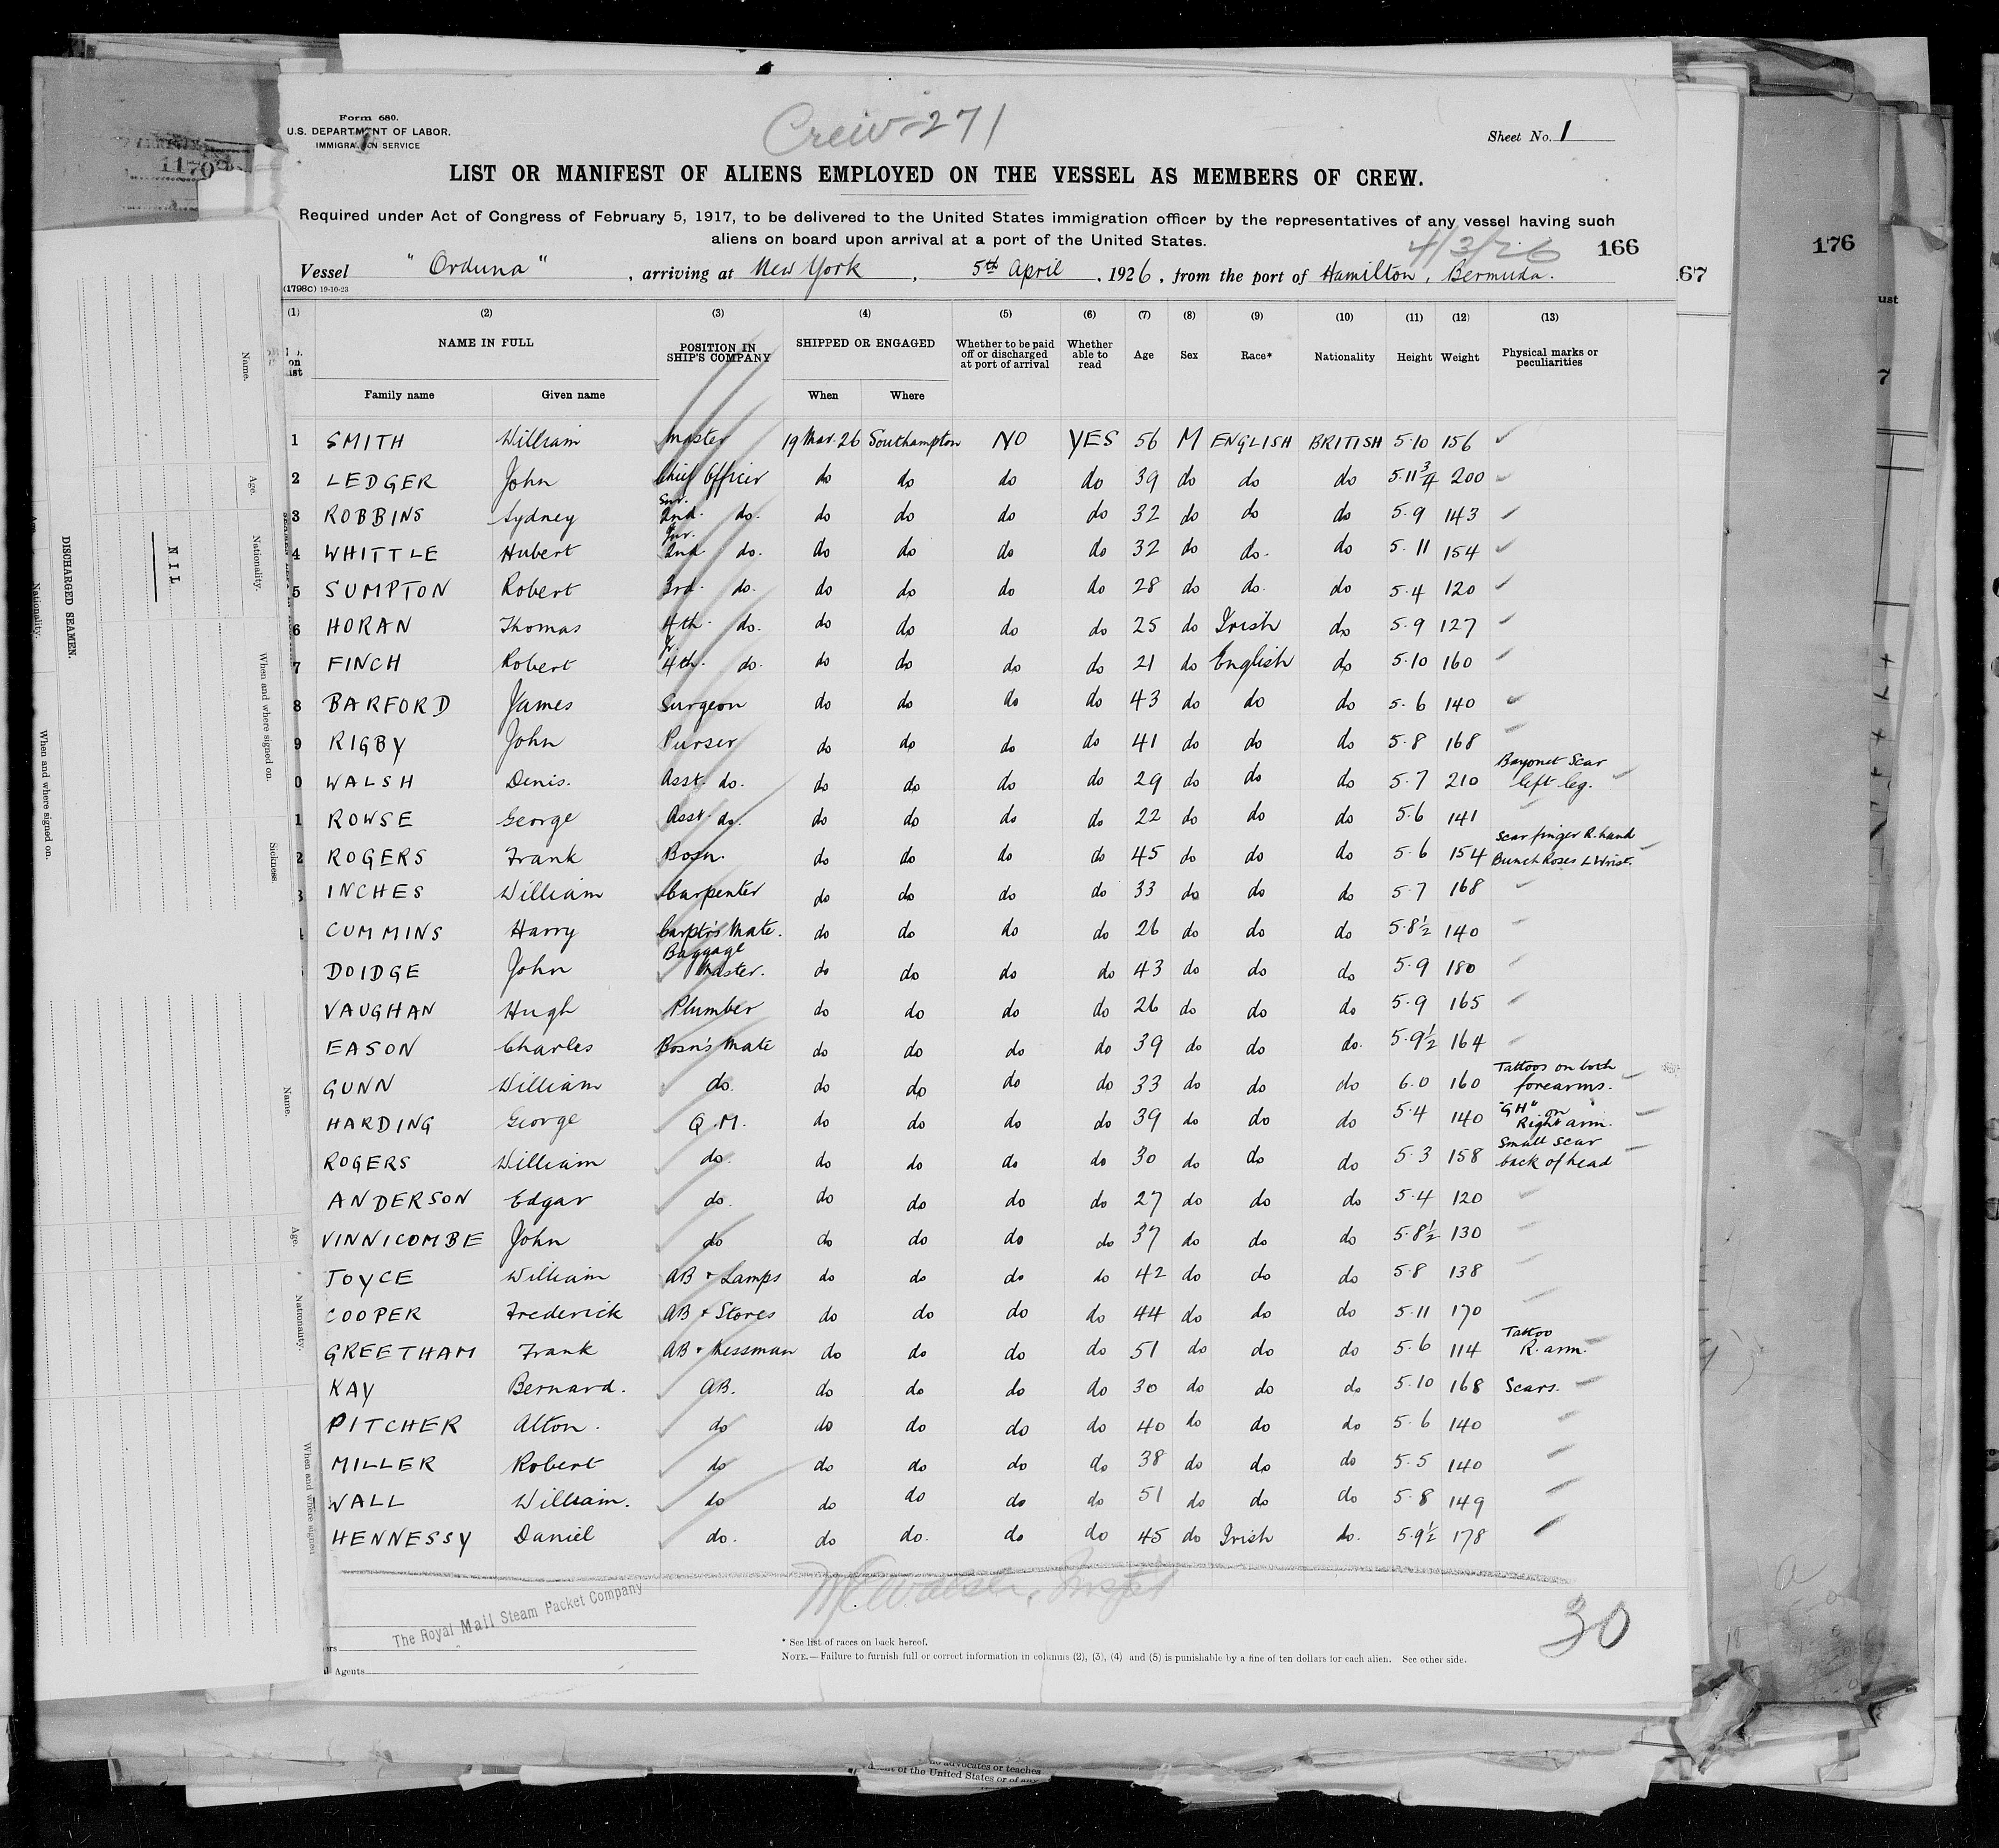 Form 680.
U.S. DEPARTMENT OF LABOR.
IMMIGRATION SERVICE
Crew-271
Sheet No. 1
LIST OR MANIFEST OF ALIENS EMPLOYED ON THE VESSEL AS MEMBERS OF CREW.
Required under Act of Congress of February 5, 1917, to be delivered to the United States immigration officer by the representatives of any vessel having such
aliens on board upon arrival at a port of the United States.
4/3/26
166
176
67
1170
Vessel "Orduna", arriving at New York, 5th April, 1926, from the port of Hamilton, Bermuda.
(1798C) 19-10-23
(1) (2) (3) (4) (5) (6) (7) (8) (9) (10) (11) (12) (13)
NAME IN FULL POSITION IN SHIP'S COMPANY SHIPPED OR ENGAGED Whether to be paid off or discharged at port of arrival Whether able to read Age Sex Race* Nationality Height Weight Physical marks or peculiarities
Family name Given name When Where
1 SMITH William Master 19 Mar. 26 Southampton NO YES 56 M ENGLISH BRITISH 5·10 156
2 LEDGER John Chief Officer do do do do 39 do do do 5·11 3/4 200
3 ROBBINS Sydney Snr. 2nd. do. do do do do 32 do do do 5·9 143
4 WHITTLE Hubert Jnr. 2nd do. do do do do 32 do do. do 5·11 154
5 SUMPTON Robert 3rd. do. do do do do 28 do do. do 5·4 120
6 HORAN Thomas 4th. do. do do do do 25 do Irish do 5·9 127
7 FINCH Robert 4th. do. do do do do 21 do English do 5·10 160
8 BARFORD James Surgeon do do do do 43 do do do 5·6 140
9 RIGBY John Purser do do do do 41 do do do 5·8 168
0 WALSH Denis. Asst. do. do do do do 29 do do do 5·7 210 Bayonet Scar left leg.
1 ROWSE George Asst. do. do do do do 22 do do do 5·6 141
2 ROGERS Frank Bosn. do do do do 45 do do do 5·6 154 Scar finger R. hand Bunch Roses L Wrist.
3 INCHES William Carpenter do do do do 33 do do do 5·7 168
CUMMINS Harry Carptr's Mate. do do do do 26 do do do 5·8½ 140
DOIDGE John Baggage Master. do do do do 43 do do do 5·9 180
VAUGHAN Hugh Plumber do do do do 26 do do do 5·9 165
EASON Charles Bosn's Mate do do do do 39 do do do. 5·9½ 164
GUNN William do. do do do do 33 do do do 6·0 160 Tattoos on both forearms.
HARDING George Q.M. do do do do 39 do do do 5·4 140 "GH" on Right arm.
ROGERS William do. do do do do 30 do do do 5·3 158 Small scar back of head
ANDERSON Edgar do. do do do do 27 do do do 5·4 120
VINNICOMBE John do do do do do 37 do do do 5·8½ 130
JOYCE William AB + Lamps do do do do 42 do do do 5·8 138
COOPER Frederick AB + Stores do do do do 44 do do do 5·11 170
GREETHAM Frank AB + Messman do do do do 51 do do do 5·6 114 Tattoo R. arm.
KAY Bernard. AB. do do do do 30 do do do 5·10 168 Scars.
PITCHER Alton. do do do do do 40 do do do 5·6 140
MILLER Robert do do do do do 38 do do do 5·5 140
WALL William. do do do do do 51 do do do 5·8 149
HENNESSY Daniel do. do do. do do 45 do Irish do. 5·9½ 178
The Royal Mail Steam Packet Company
Agents
30
* See list of races on back hereof.
NOTE.—Failure to furnish full or correct information in columns (2), (3), (4) and (5) is punishable by a fine of ten dollars for each alien. See other side.
DISCHARGED SEAMEN.
NIL
Name.
Age.
Nationality.
When and where signed on.
Sickness.
Name.
Age.
Nationality.
When and where signed
Nationality.
When and where signed on.
no advocates or teaches
of the United States or of any